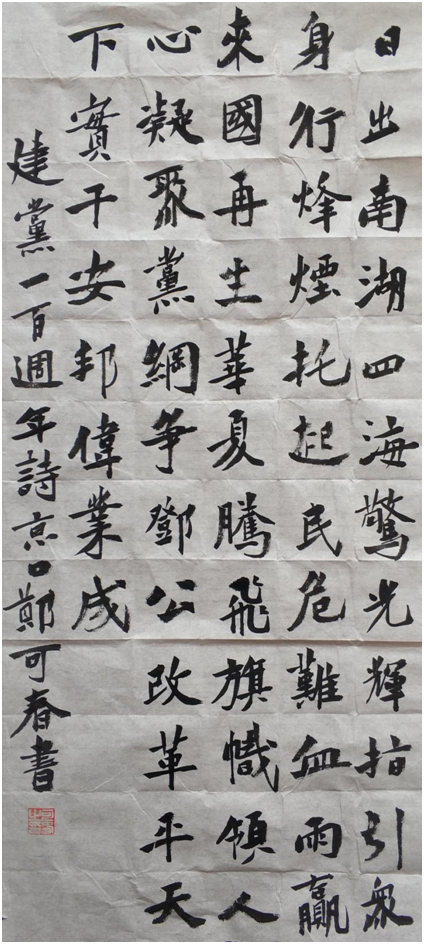 日出南湖四海驚光輝指引衆
身行烽煙托起民危難血雨贏
來國再生華夏騰飛旗幟領人
心凝聚黨綱争鄧公改革平天
下實干安邦偉業成
建黨一百週年詩京口鄭可春書